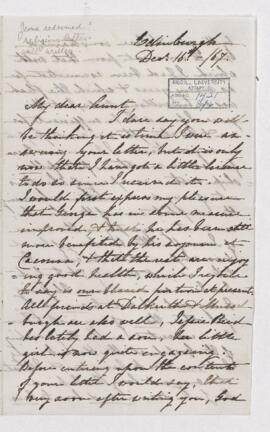 Edinburgh
Decr 16th /67.
My dear Aunt,
I dare say you will
be thinking it is time I were an-
swering your letter, but it is only
now that I have got a little leisure
to do so since I received it.
I would first express my pleasure
that George has in some measure
improved, & he has been still
more benefited by his sojourn at
& that the rest are enjoy-
ing good health, which I rejoice
to say is our shared portion at present.
All friends at Dalkeith &
burgh are also well,
has lately had a son, her little
girl is now quite engaging.
Before entering upon the contents
of your letter I would say, that
very soon after writing you, God